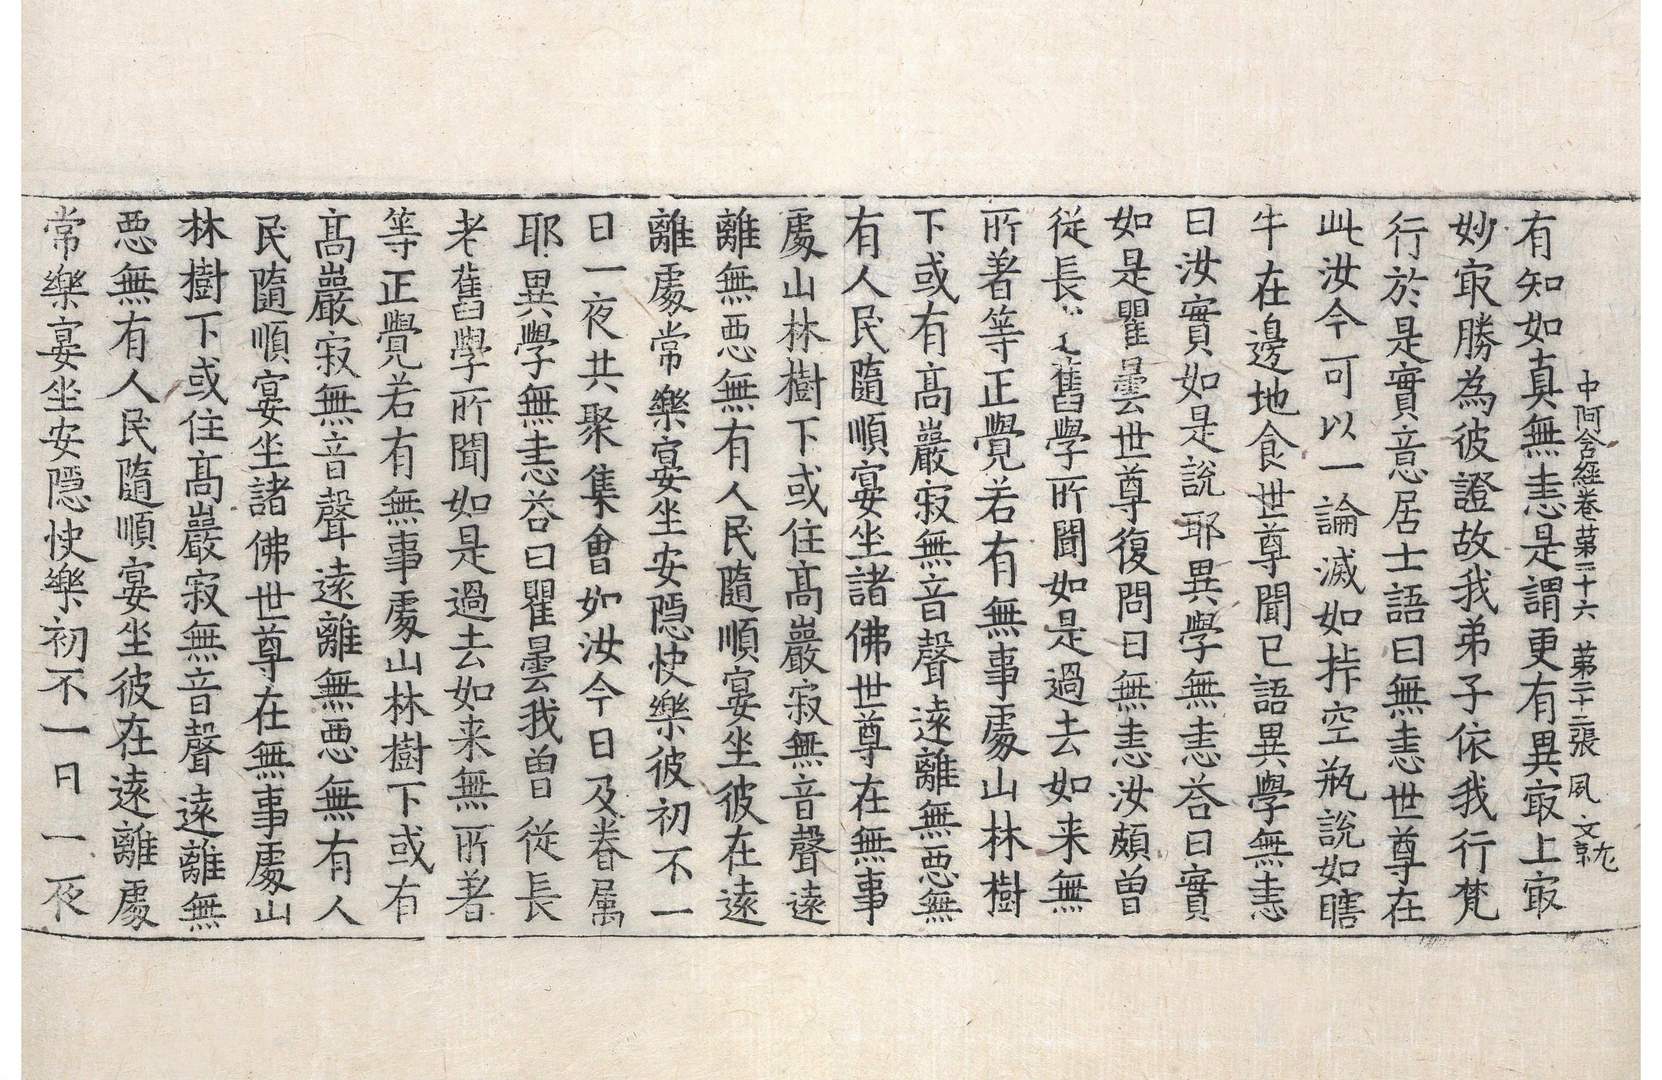 中阿含經卷苐二十六 苐二十二張 夙
有知如真無恚是謂更有異㝡上㝡
妙㝡勝為彼證故我弟子依我行梵
行於是實意居士語曰無恚世尊在
此汝今可以一論滅如空瓶說如瞎
牛在邊地食世尊聞已語異學無恚
曰汝實如是說耶異學無恚荅曰實
如是瞿曇世尊復問曰無恚汝頗曽
從長舊學所聞如是過去如来無
所著等正覺若有無事處山林樹
下或有髙巖寂無音聲遠離無惡無
有人民隨順宴坐諸佛世尊在無事
處山林樹下或住髙巖寂無音聲遠
離無惡無有人民隨順宴坐彼在遠
離處常樂宴坐安隱快樂彼初不一
日一夜共聚集會如汝今日及眷属
耶異學無恚荅曰瞿曇我曽從長
老舊學所聞如是過去如来無所著
等正覺若有無事處山林樹下或有
髙巖寂無音聲遠離無惡無有人
民隨順宴坐諸佛世尊在無事處山
林樹下或住髙巖寂無音聲遠離無
惡無有人民隨順宴坐彼在遠離處
常樂宴坐安隱快樂初不一日一夜